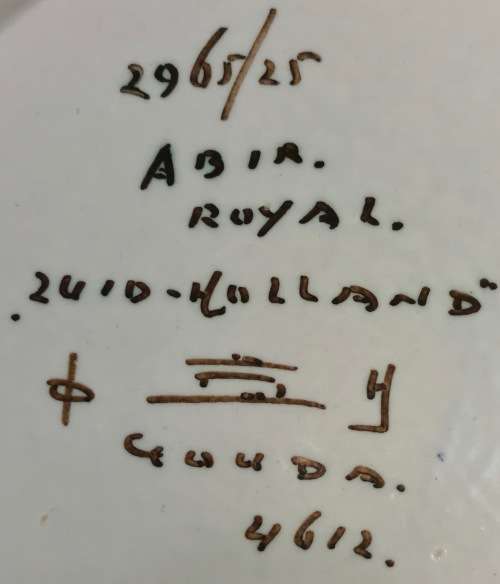 2965/25
ABIR.
ROYAL.
„ZUID-HOLLAND"
GOUDA.
4612.